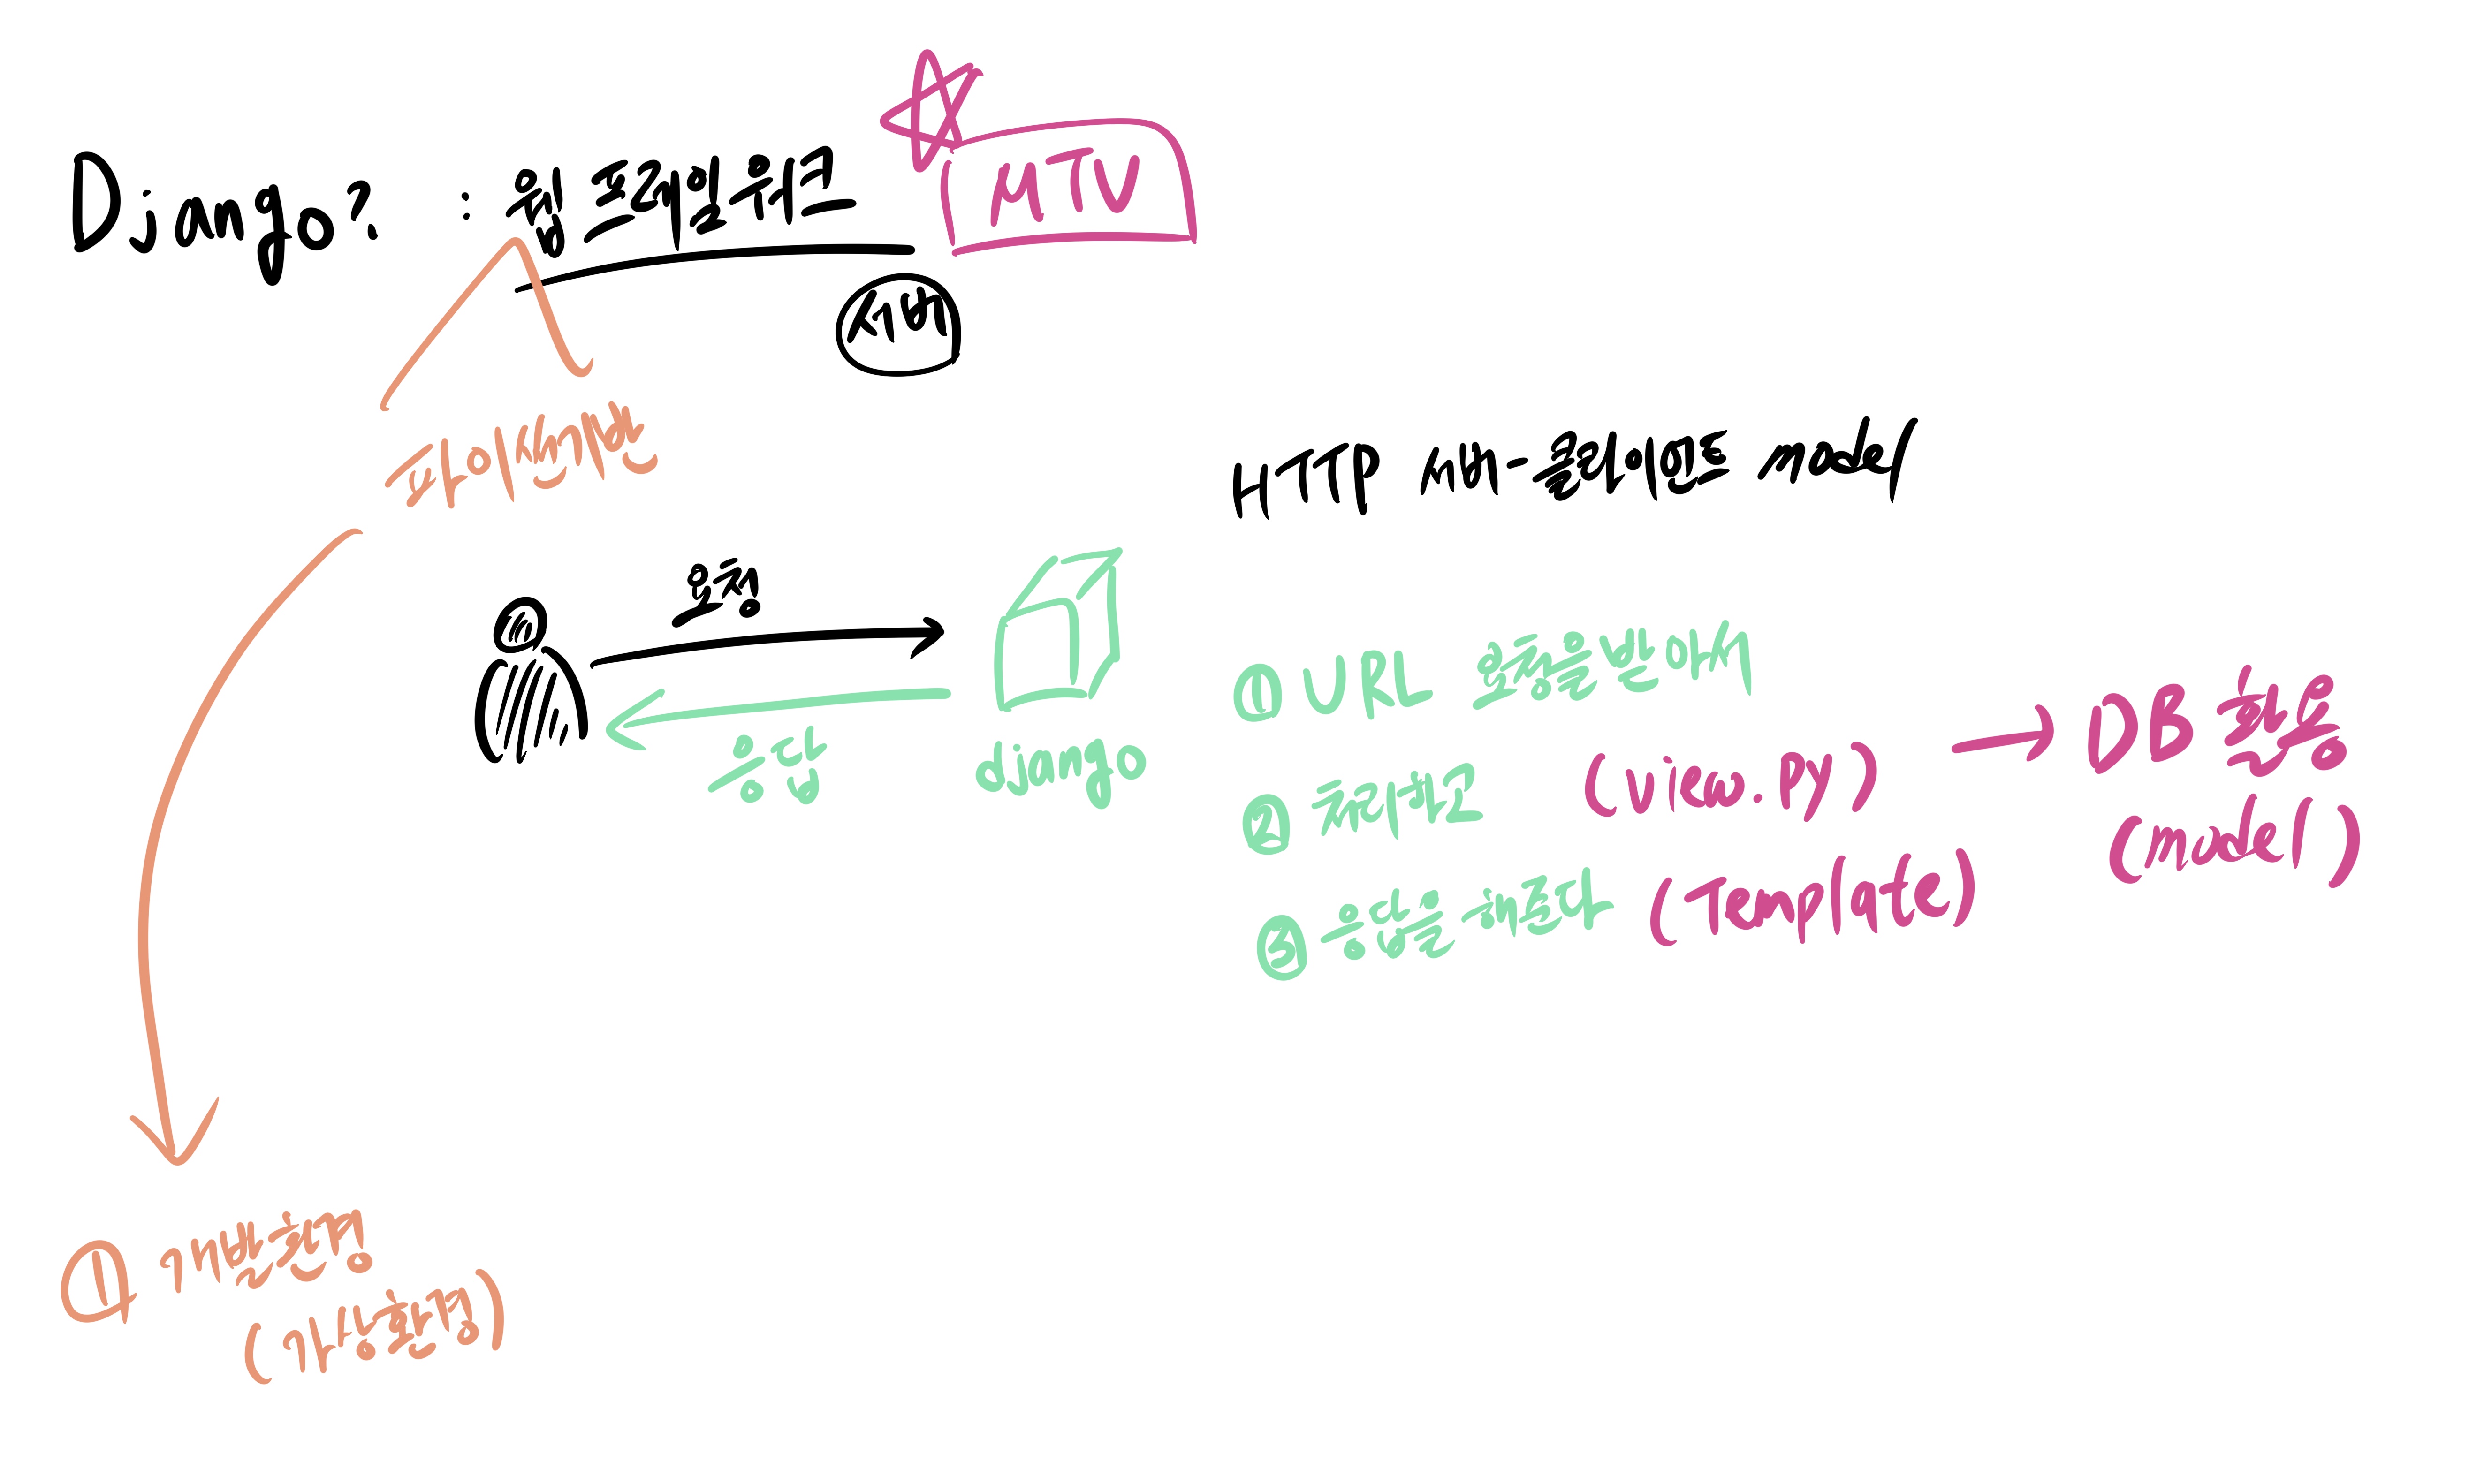 Django? : 웹 프레임워크
MTV
서버
파이썬기반
HTTP 서버-클라이언트 model
요청
응답
django
① URL 요청을 받아서
② 처리하고 (view.py) → DB 활용
(model)
③ 응답을 해준다 (Template)
① 개발환경
(가상환경)